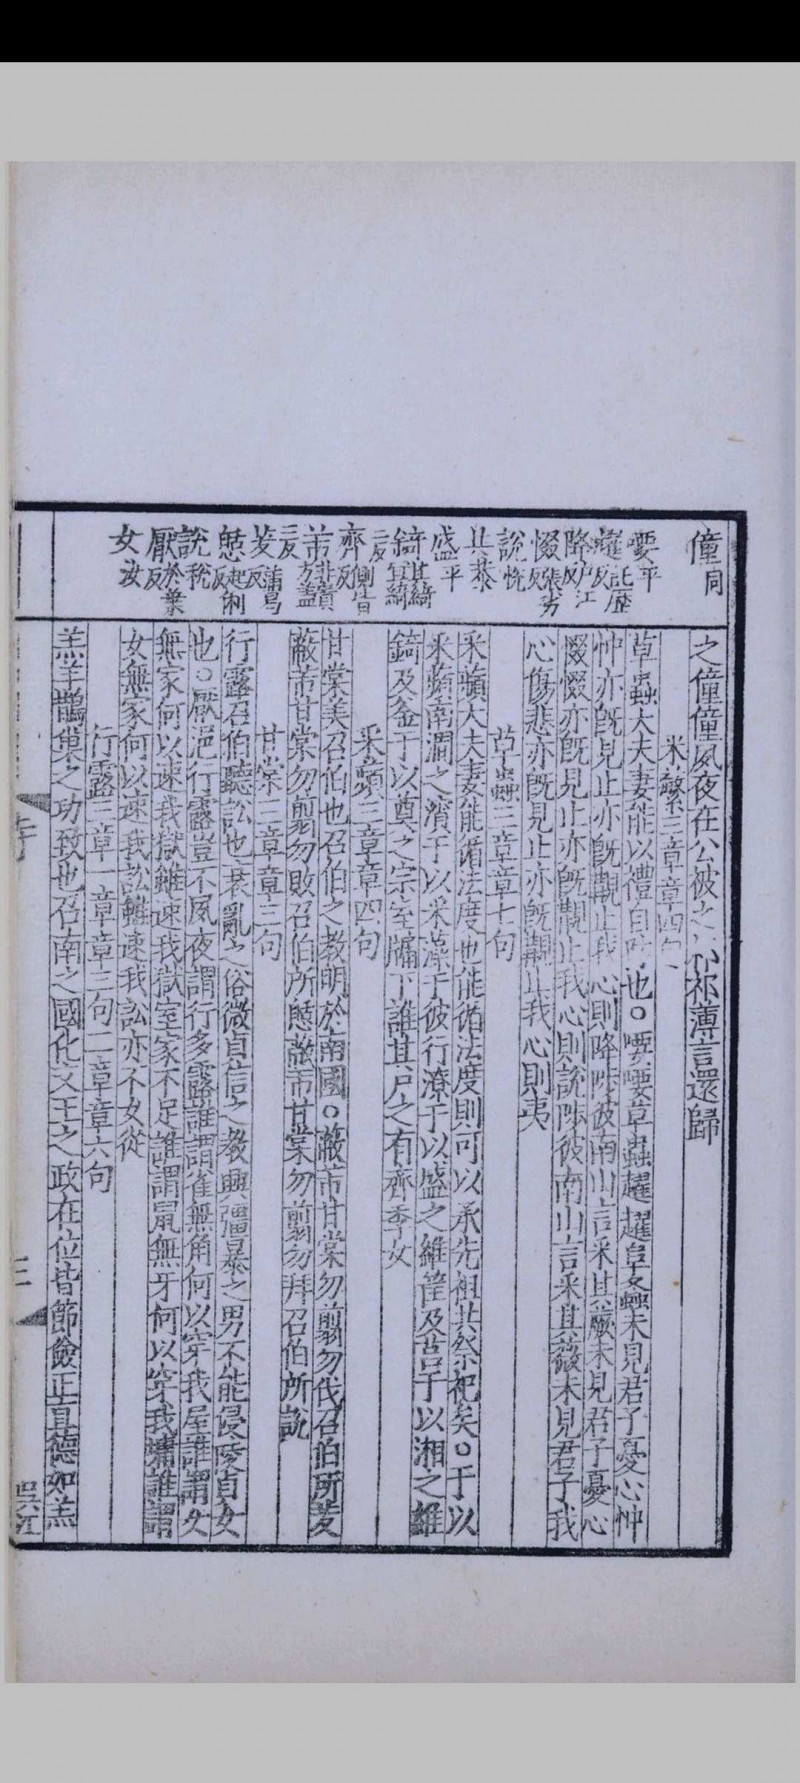 僮同
喓平
趯託歷反
降戶江反
惙張劣反
說悅
共恭
盛平
錡其綺宜綺二反
齊側皆反
芾非貴方蓋二反
茇蒲曷反
憩起例反
說稅
厭於葉反
女汝
之僮僮夙夜在公被之祁祁薄言還歸
采蘩三章章四句
草蟲大夫妻能以禮自防也○喓喓草蟲趯趯阜螽未見君子憂心忡
忡亦旣見止亦旣覯止我心則降陟彼南山言采其蕨未見君子憂心
惙惙亦旣見止亦旣覯止我心則說陟彼南山言采其薇未見君子我
心傷悲亦旣見止亦旣覯止我心則夷
草蟲三章章七句
采蘋大夫妻能循法度也能循法度則可以承先祖共祭祀矣○于以
采蘋南澗之濱于以采藻于彼行潦于以盛之維筐及筥于以湘之維
錡及釜于以奠之宗室牖下誰其尸之有齊季女
采蘋三章章四句
甘棠美召伯也召伯之教明於南國○蔽芾甘棠勿翦勿伐召伯所茇
蔽芾甘棠勿翦勿敗召伯所憩蔽芾甘棠勿翦勿拜召伯所說
甘棠三章章三句
行露召伯聽訟也衰亂之俗微貞信之教興彊暴之男不能侵陵貞女
也○厭浥行露豈不夙夜謂行多露誰謂雀無角何以穿我屋誰謂女
無家何以速我獄雖速我獄室家不足誰謂鼠無牙何以穿我墉誰謂
女無家何以速我訟雖速我訟亦不女從
行露三章一章章三句二章章六句
羔羊鵲巢之功致也召南之國化文王之政在位皆節儉正直德如羔